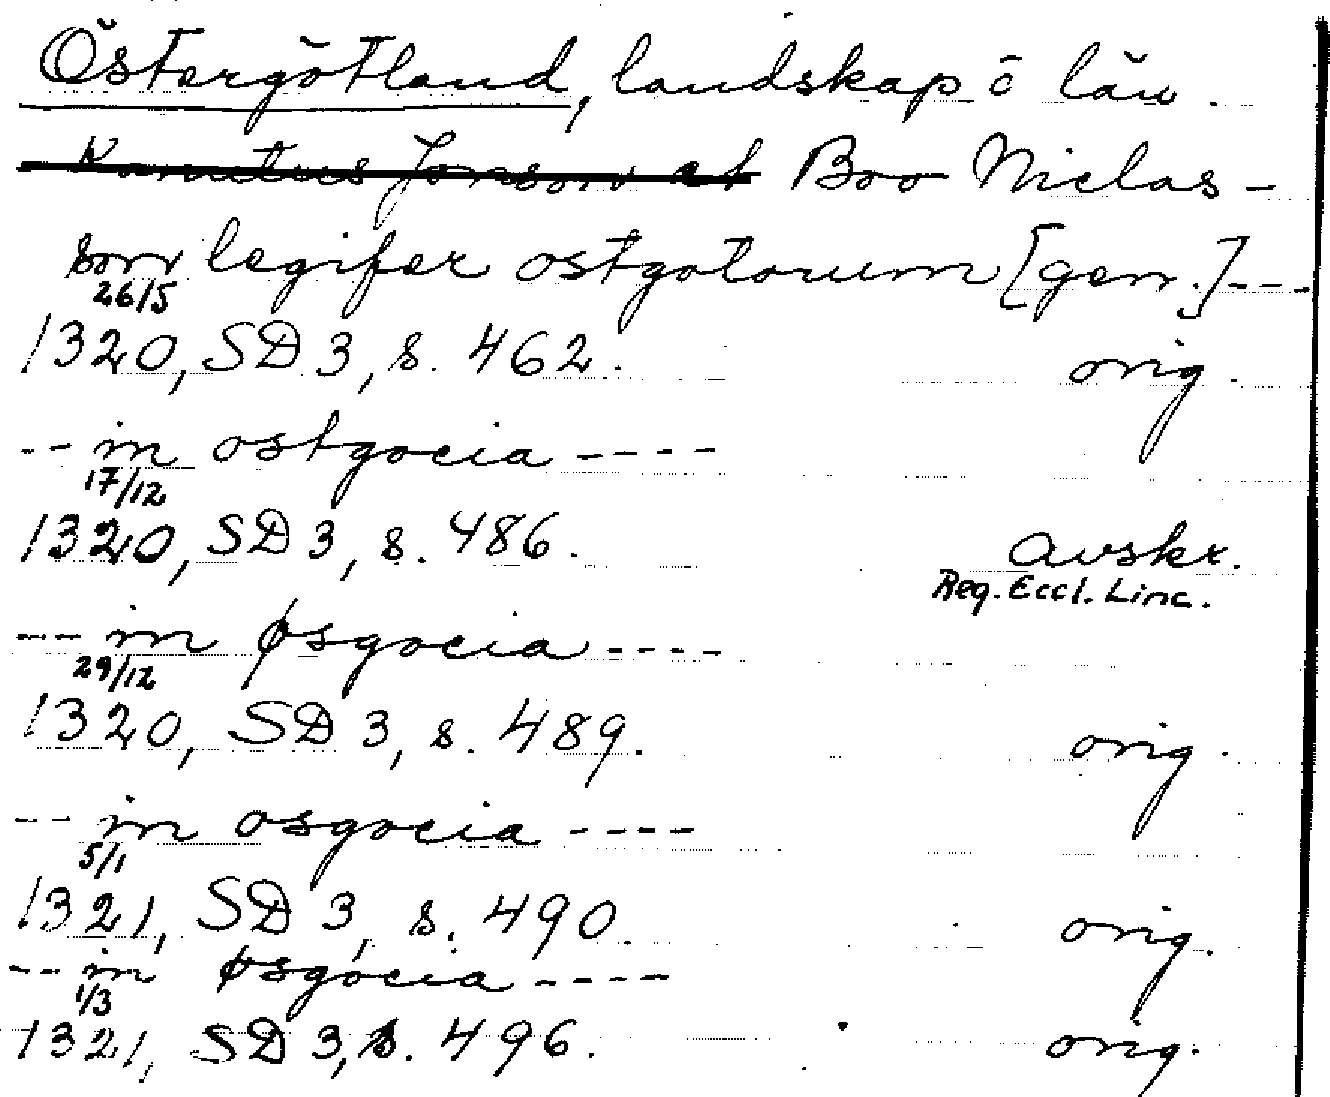 Östergötland, landskap o län.
Kanutus Jonson et Boo Niclas-
son legifer ostgotorum [gen.]---
26/5
1320, SD 3, s. 462. orig.
-- in ostgocia ----
17/12
1320, SD 3, s. 486. avskr.
Reg. Eccl. Linc.
--- in øsgocia ----
29/12
1320, SD 3, s. 489. orig.
-- in osgocia ----
5/1
1321, SD 3, s. 490. orig.
-- in øsgocia ----
1/3
1321, SD 3, s. 496. orig.